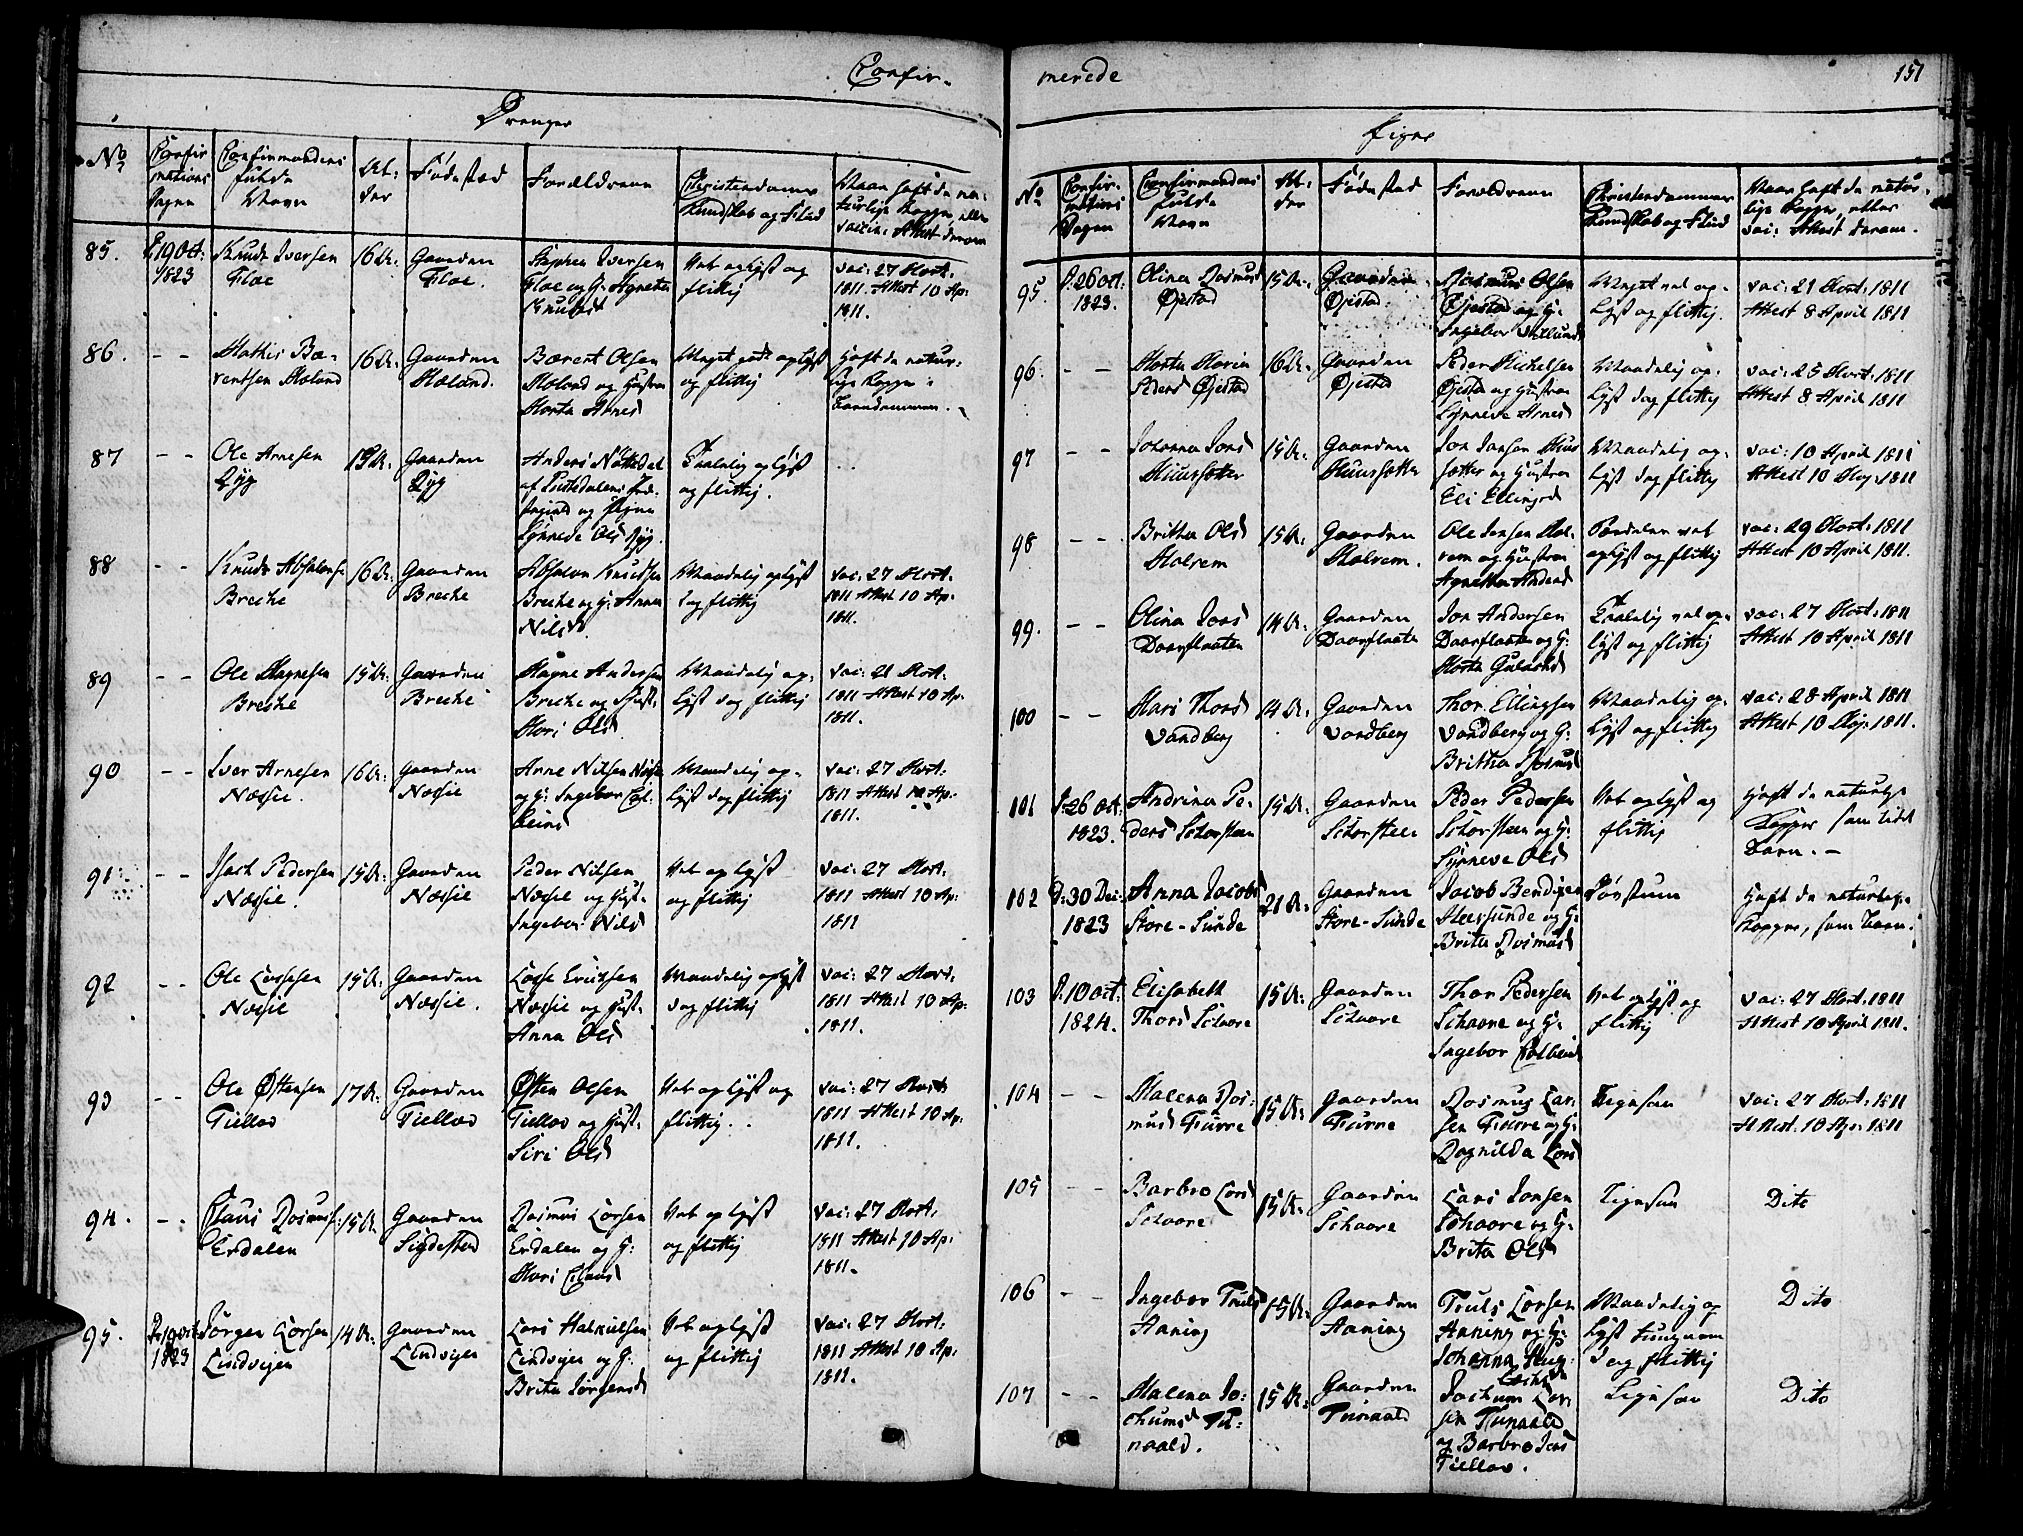 Confir-
Drenger
No
Confir
mations
Dagen
Confirmandens
fulde
Navn
Al-
der
Fødested
Forældrene
Christendoms
Kundskab og Flid
85.
D. 19 Oct:
1823
Knud Iversen
Floe
16 A:
Gaarden
Floe.
Stephen Iversen
Floe og H: Agnete
Knudsd
Vel oplyst og
flittig
vac: 27 Mart:
1811. Attest 10 Ap:
1811.
86.
- -
Mathis Bæ-
rentsen Mæland
16 A:
Gaarden
Mæland.
Bærent Olsen
Mæland og Hustru
Marta Arnesd
Meget godt oplyst
og flittig
haft de natur-
lige Kopper i
Barndommen.
87
- -
Ole Arnesen
Ryg
19 A:
Gaarden
Ryg
Anders Nøttedal
af Justedalens Præ-
stegield og Pigen
Synneve Olsd Ryg.
Taalelig oplyst
og flittig.
88
- -
Knud Absalons:
Breche
16 A:
Gaarden
Breche
Absalon Knudsen
Breche og H: Anna
Nilsd.
Maadelig oplyst
dog flittig
vac: 27 Mart:
1811 Attest 10 Ap:
1811.
89
- -
Ole Magnesen
Breche
15 A:
Gaarden
Breche
Magne Andersen
Breche og Hust:
Mari Olsd
Maadelig op-
lyst dog flittig
vac: 21 Mart:
1811 Attest 10 Ap:
1811.
90
- -
Iver Arnesen
Næssie.
16 A:
Gaarden
Næssie
Arne Nilsen Næssie
og H: Ingebor Col-
beinsd
Maadelig op-
lyst dog flittig
vac: 27 Mart:
1811 Attest 10 Ap:
1811.
91.
- -
Isach Pedersen
Næssie.
15 A:
Gaarden
Næssie
Peder Nilsen
Næssie og Hust:
Ingebor Nilsd
Vel oplyst
og flittig
vac: 27 Mart:
1811 Attest 10 Ap:
1811
92
- -
Ole Lassesen
Næssie
15 A:
Gaarden
Næssie.
Lasse Erichsen
Næssie og Hust:
Anna Olsd
Maadelig oplyst
dog flittig
vac: 27 Mart:
1811 Attest 10 Ap:
1811.
93
- -
Ole Østensen
Tiellov
17 A:
Gaarden
Tiellov
Østen Olsen
Tiellov og Hust:
Siri Olsd
Vel oplyst og
flittig.
vac: 27 Mart:
1811 Attest 10 Ap:
1811.
94.
- -
Claus Rasmus:
Erdalen
15 A:
Gaarden
Rasmus Larsen
Erdalen og H:
Mari Clausd
Vel oplyst
og flittig
vac: 27 Mart:
1811 Attest 10 Ap:
1811.
95.
D. 19 Oct:
1823
Jørgen Larsen
Lindvigen
14 A:
Gaarden
Lindvigen
Lars Halvulsen
Lindvigen og H:
Brita Jørgensd
Vel oplyst
og flittig
vac: 27 Mart:
1811 Attest 10 Ap:
1811.
merede
151
Piger
No
Confir-
mations
Dagen
Confirmandens
fulde
Navn
Al-
der
Fødested
Forældrene
Christendoms
Kundskab og Flid
Naar haft de natur-
lige Kopper, eller
vac: Attest derom.
95.
D: 26 Oct:
1823.
Olina Rasmusd
Øjestad
15 A:
Gaarden
Øjestad
Rasmus Olsen
Øjestad og H:
Meget vel op-
lyst og flittig.
vac: 21 Mart: 1811
Attest 8 April 1811
96.
- -
Marta Maria
Pedersd Øjestad
16 A:
Gaarden
Øjestad
Peder Michelsen
Øjestad og Hustru
Synneve Arnesd
Maadelig op-
lyst dog flittig
vac: 25 Mart: 1811
Attest 8 April 1811
97
- -
Johanna Jonsd
Muursetter
15 A:
Gaarden
Muursetter
Jon Jonsen Muur
setter og Hustru
Eli Ellingsd
Maadelig op-
lyst dog flittig
vac: 10 April 1811
Attest 10 Maj: 1811
98
- -
Britha Olsd
Molvem
15 A:
Gaarden
Molvem.
Ole Jensen Mol-
vem og Hustru
Agnetha Andersd
vel
oplyst og flittig
vac: 29 Mart: 1811
Attest 10 April 1811.
99.
- -
Olina Jonsd
Daarflaaten
14 A:
Gaarden
Daarflaaten
Jon Andersen
Daarflaaten og H:
Marta Gulachsd
Taalelig vel op-
lyst og flittig
vac: 27 Mart: 1811
Attest 10 April 1811
100
- -
Mari Thorsd
Vandberg
14 A:
Gaarden
Vandberg
Thor Ellingsen
Vandberg og H:
Britha Rasmusd
Maadelig op-
lyst og flittig
vac: 28 April 1811
Attest 10 Maj: 1811.
101
D: 26 Oct.
1823.
Andrina Pe-
dersd Schorsteen
15 A:
Gaarden
Schorsteen
Peder Pedersen
Schorsteen og H:
Synneve Olsd
Vel oplyst og
flittig
haft de naturlige
Kopper som lidet
Barn. -
102
D: 30 Dec:
1823
Anna Jacobsd
Store-Sunde
21 A:
Gaarden
Store-Sunde
Jacob Bendixen
Storesunde og H:
Brita Rasmusd
haft de naturlige
Kopper, som barn.
103
D: 10 oct:
1824.
Elisabeth
Thorsd Schaare
15 A:
Gaarden
Schaare
Thor Pedersen
Schaare og H:
Ingebor Colbeinsd
Vel oplyst og
flittig
vac: 27 Mart: 1811
Attest 10 April 1811.
104
- -
Malena Ras-
musd Furre
15 A:
Gaarden
Furre
Rasmus Lar-
sen Furre og H:
Ragnilda Larsd
Ligesaa
vac: 27 Mart: 1811
Attest: 10 Ap: 1811
105
- -
Barbro Larsd
Schaare
15 A:
Gaarden
Schaare
Lars Jonsen
Schaare og H:
Brita Olsd
Ligesaa
Dito
106
- -
Ingebor Trulsd
Aaning
15 A:
Gaarden
Aaning
Truls Larsen
Aaning og H:
Johanna
Maadelig op
lyst
dog flittig
Dito
107
- -
Malena Jo-
chumsd Tu-
naald.
15 A:
Gaarden
Tunaald
Jochum Lar-
sen Tunaald
og Barbro Jonsd
Tiellov.
Ligesaa
Dito